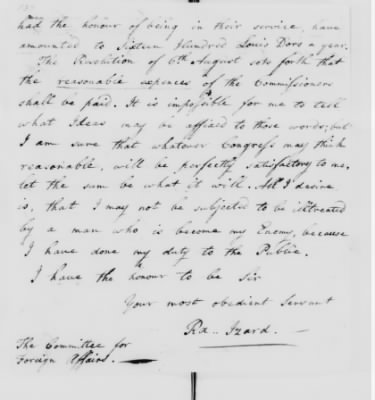 had the honour of being in their service, have
amounted to Sixteen Hundred Louis Dors a year.
The Resolution of 6th August sets forth that
the reasonable expences of the Commissioners
shall be paid. It is impossible for me to tell
what Ideas may be affixed to those words; but
I am sure that whatever Congress may think
reasonable, will be perfectly satisfactory to me,
let the sum be what it will. All I desire
is, that I may not be subjected to be illtreated
by a man who is become my Enemy, because
I have done my duty to the Public.
I have the honour to be Sir
Your most obedient Servant
Ra.. Izard.
The Committee for
Foreign Affairs.